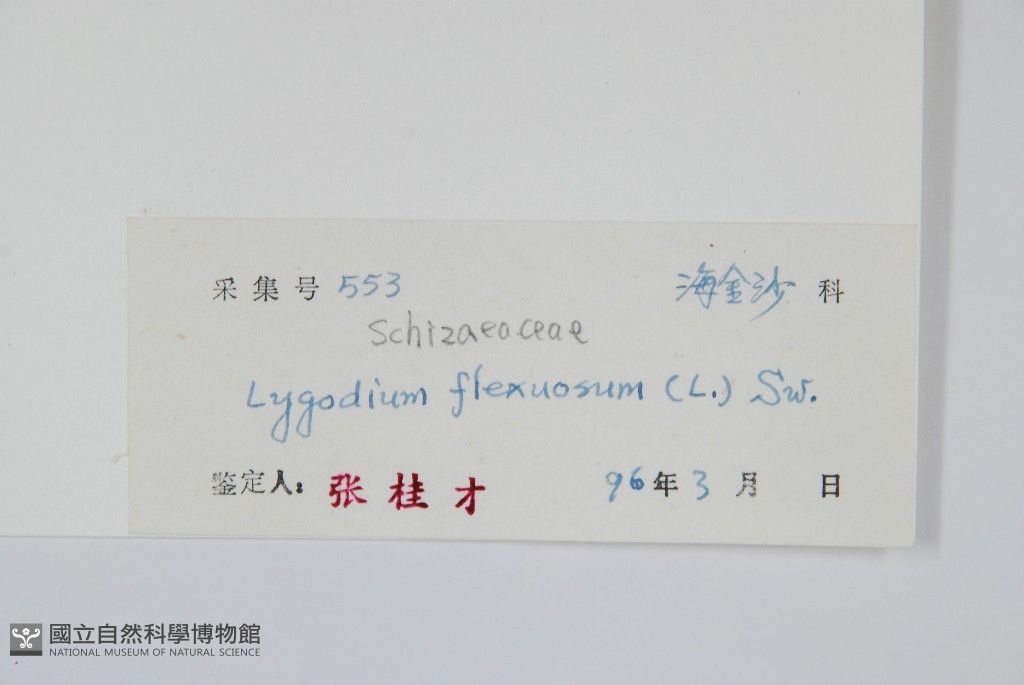 采集号 553 海金沙 科
Schizaeaceae
Lygodium flexuosum (L.) Sw.
鉴定人: 张桂才 96年3月 日
國立自然科學博物館
NATIONAL MUSEUM OF NATURAL SCIENCE